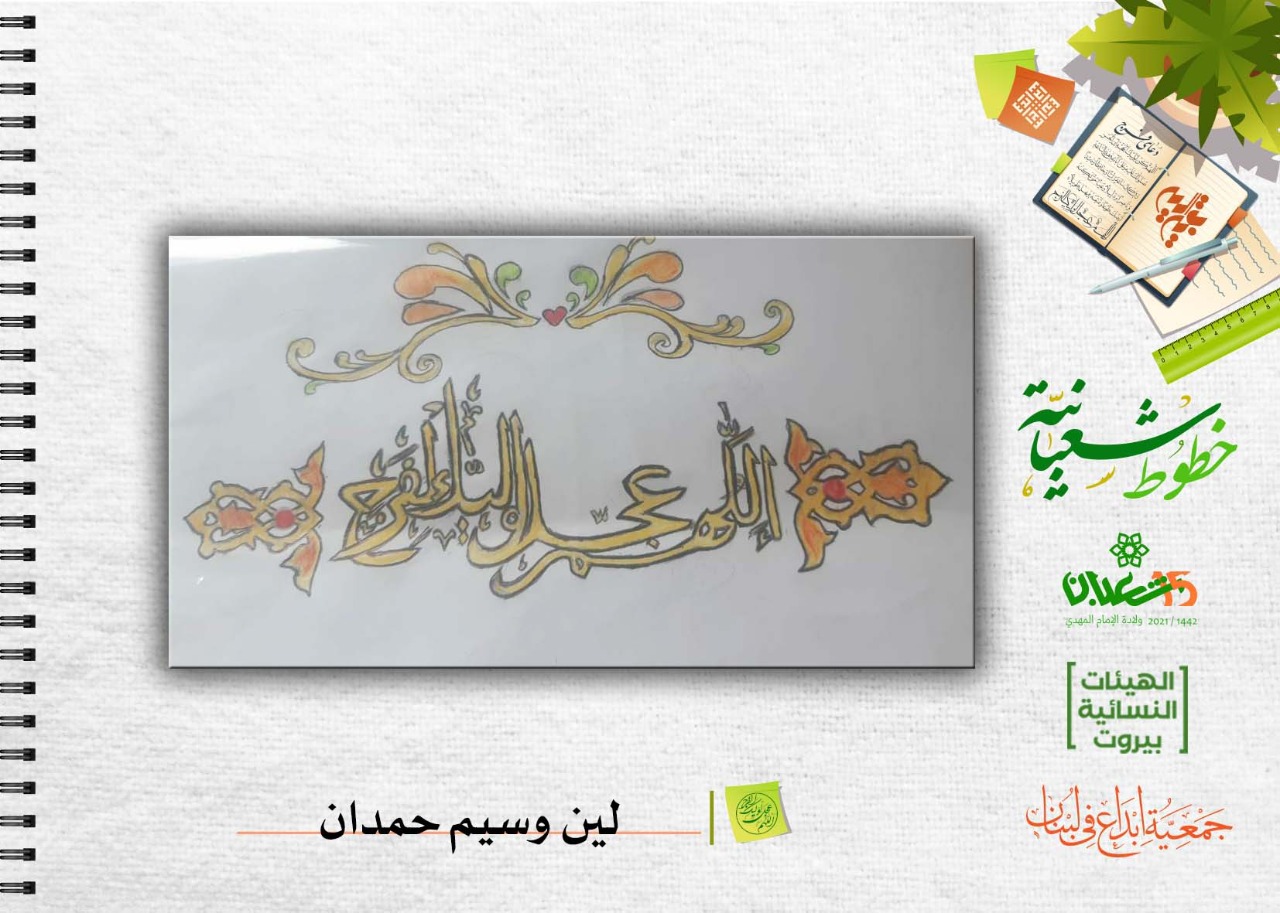 اللهم عجل لوليك الفرج
دعای فرج
خطوط
شعبانية
15 شعبان
1442 / 2021 ولادة الإمام المهدي
الهيئات
النسائية
بيروت
جمعية إبداع في لبنان
لين وسيم حمدان
0 1 2 3 4 5 6 7 8